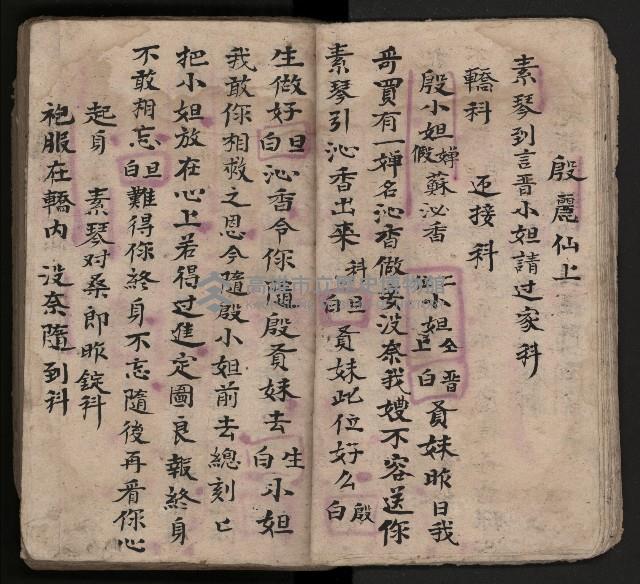 殷麗仙上
素琴到言晋小姐請过家科
轎科 迎接科
殷小姐婢假蘇沁香 小姐仝上 晋白 貢妹昨日我
哥買有一婢名沁香做妾没奈我嫂不容送你
素琴引沁香出來科 旦白 貢妹此位好么 殷白
生做好 旦白 沁香令你隨殷貢妹去 生白 小姐
我敢你相救之恩今隨殷小姐前去總刻亡
把小姐放在心上若得过進定圖良報終身
不敢相忘 旦白 難得你終身不忘隨後再看你心
起身 素琴对桑郎昨錠科
袍服在轎内 没奈隨到科
高雄市立歷史博物館